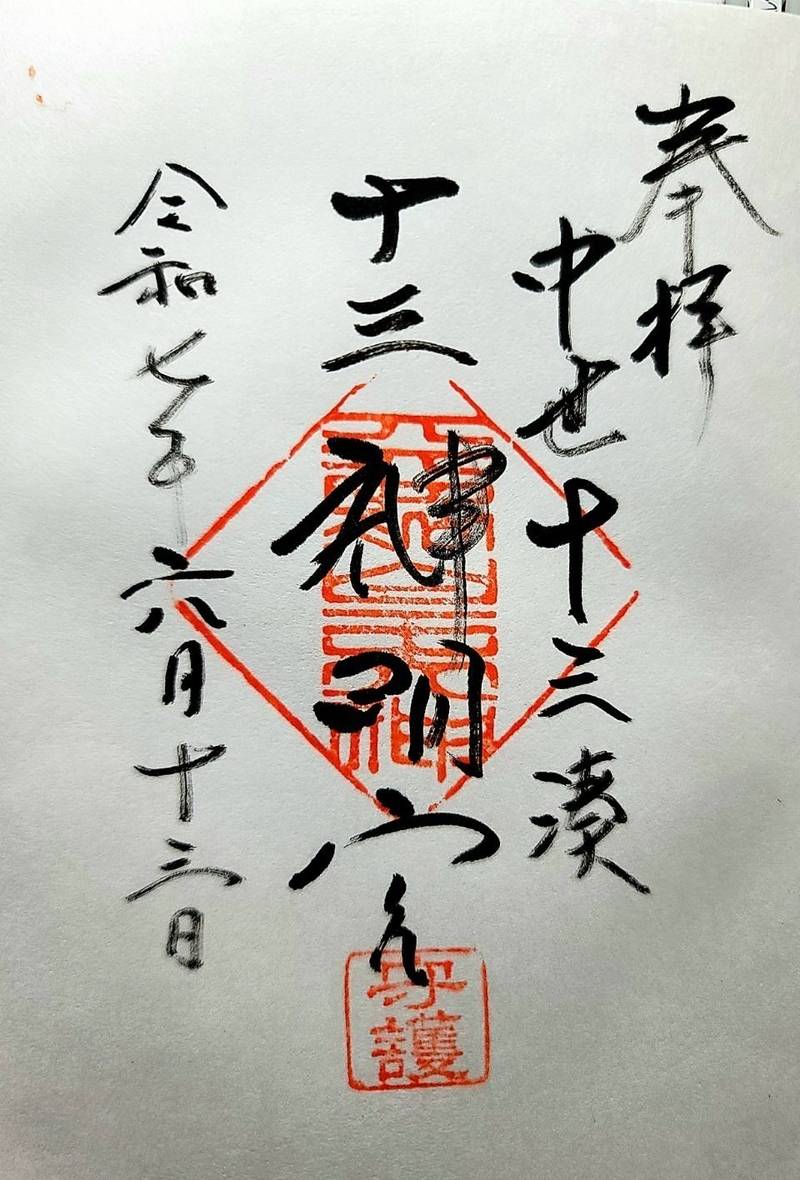 奉拝
中世十三湊
十三神明宮
令和七年六月十三日
守護